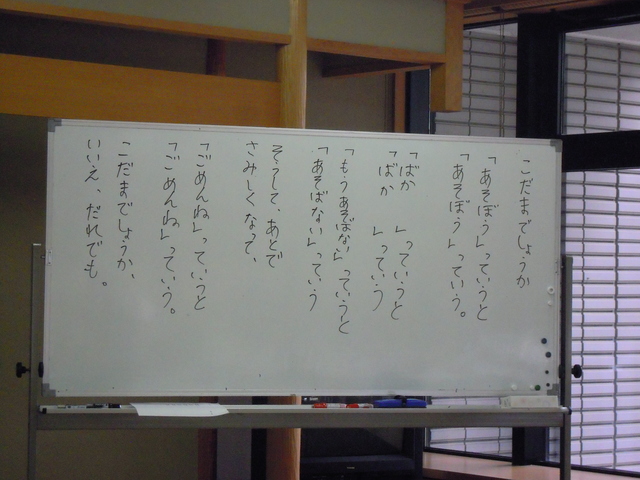 こだまでしょうか
「あそぼう」っていうと
「あそぼう」っていう。
「ばか　」っていうと
「ばか　」っていう
「もうあそばない」っていうと
「あそばない」っていう
そうして、あとで
さみしくなって、
「ごめんね」っていうと
「ごめんね」っていう。
こだまでしょうか、
いいえ、だれでも。